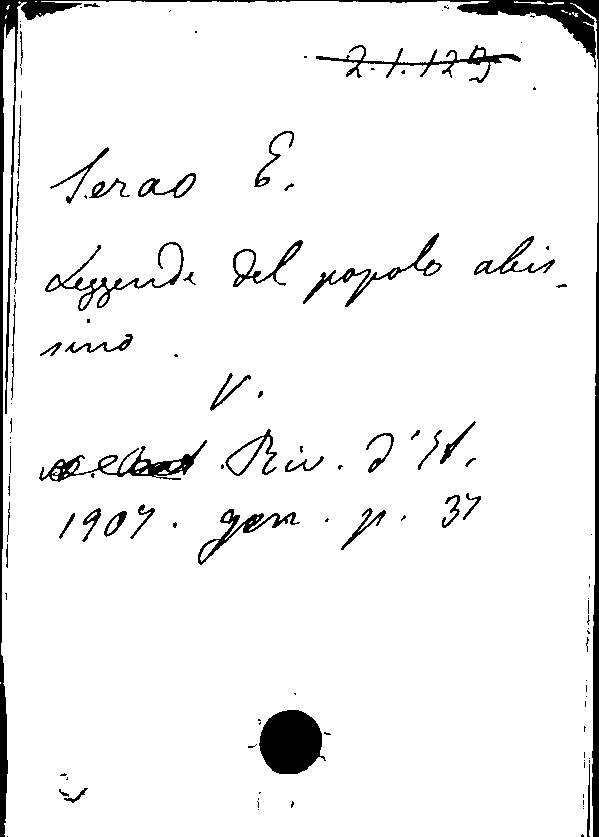 2.1.129
Serao E.
Leggende del popolo abis-
sino.
V.
Riv. d'It.
1907. gen. p. 37